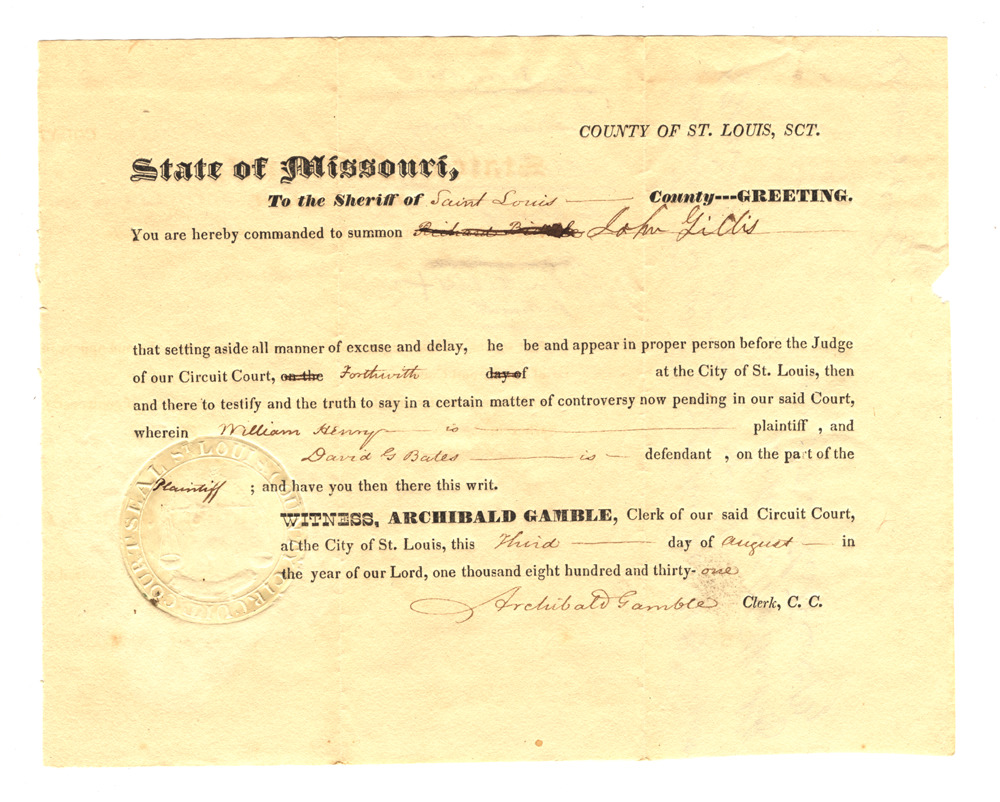 COUNTY OF ST. LOUIS, SCT.
State of Missouri,
To the Sheriff of Saint Louis County---GREETING.
You are hereby commanded to summon Richard John Gillis
that setting aside all manner of excuse and delay, he be and appear in proper person before the Judge
of our Circuit Court, on the Forthwith day of at the City of St. Louis, then
and there to testify and the truth to say in a certain matter of controversy now pending in our said Court,
wherein William Henry is plaintiff , and
David G Bates is defendant , on the part of the
Plaintiff ; and have you then there this writ.
WITNESS, ARCHIBALD GAMBLE, Clerk of our said Circuit Court,
at the City of St. Louis, this Third day of August in
the year of our Lord, one thousand eight hundred and thirty-one
Archibald Gamble Clerk, C. C.
ST LOUIS COUNTY CIRCUIT COURT SEAL